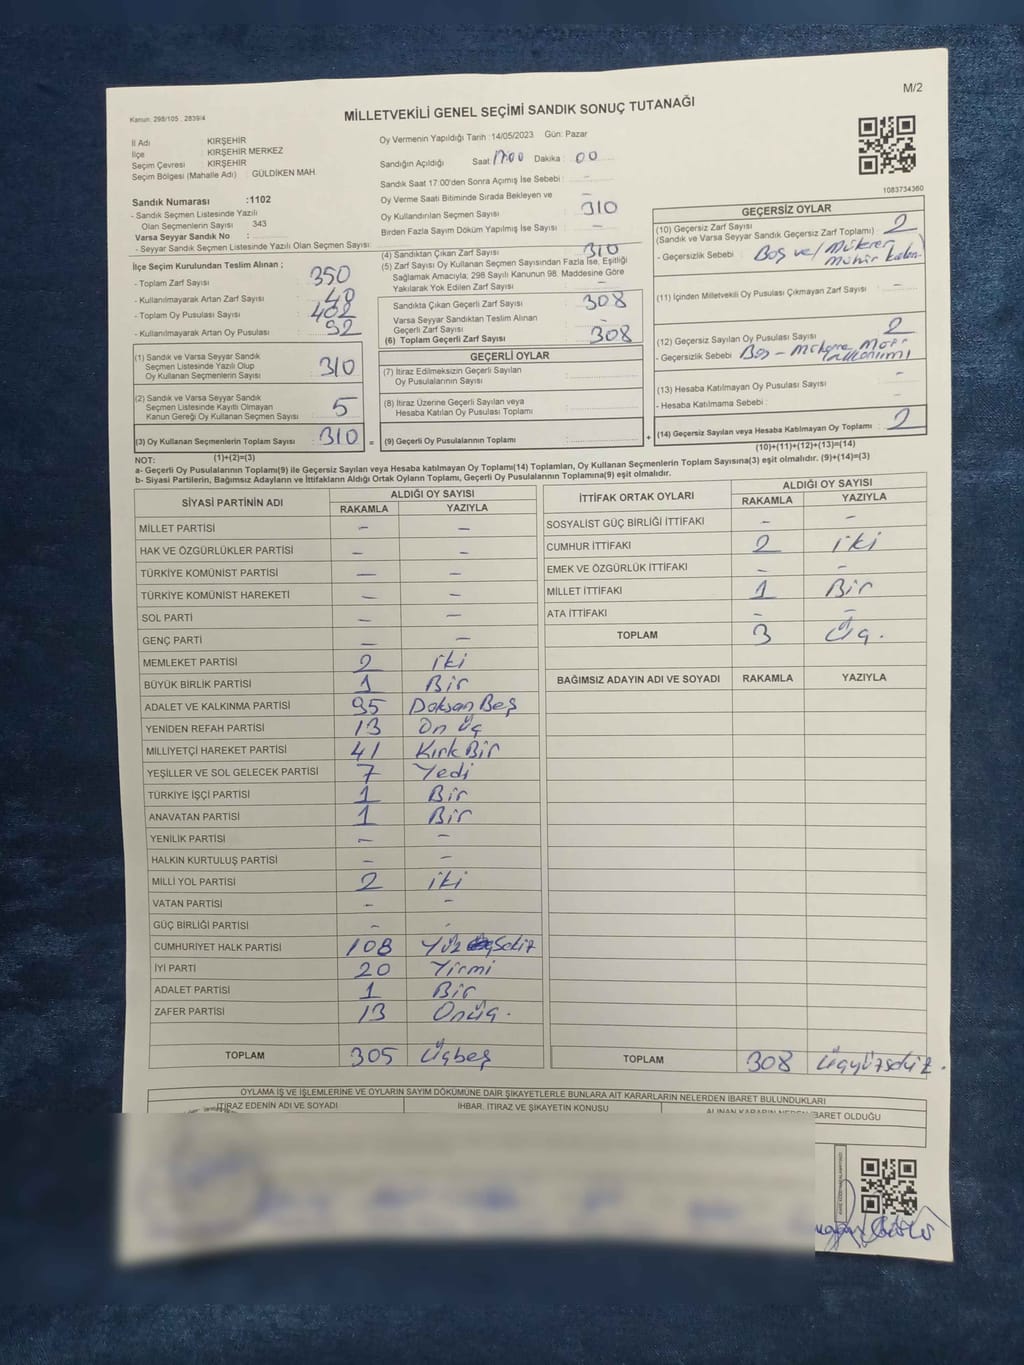 M/2
Kanun: 298/105 , 2839/4
MİLLETVEKİLİ GENEL SEÇİMİ SANDIK SONUÇ TUTANAĞI
İl Adı : KIRŞEHİR
İlçe : KIRŞEHİR MERKEZ
Seçim Çevresi : KIRŞEHİR
Seçim Bölgesi (Mahalle Adı) : GÜLDİKEN MAH
Sandık Numarası :1102
- Sandık Seçmen Listesinde Yazılı
Olan Seçmenlerin Sayısı : 343
Varsa Seyyar Sandık No :
- Seyyar Sandık Seçmen Listesinde Yazılı Olan Seçmen Sayısı:
Oy Vermenin Yapıldığı Tarih :14/05/2023 Gün: Pazar
Sandığın Açıldığı Saat: 17:00 Dakika : 00
Sandık Saat 17:00'den Sonra Açımış İse Sebebi : -
Oy Verme Saati Bitiminde Sırada Bekleyen ve
Oy Kullandırılan Seçmen Sayısı : -
310
Birden Fazla Sayım Döküm Yapılmış İse Sayısı : -
1083734360
İlçe Seçim Kurulundan Teslim Alınan ;
- Toplam Zarf Sayısı : 350
- Kullanılmayarak Artan Zarf Sayısı : 40
- Toplam Oy Pusulası Sayısı : 402
- Kullanılmayarak Artan Oy Pusulası : 92
(1) Sandık ve Varsa Seyyar Sandık
Seçmen Listesinde Yazılı Olup
Oy Kullanan Seçmenlerin Sayısı : 310
(2) Sandık ve Varsa Seyyar Sandık
Seçmen Listesinde Kayıtlı Olmayan
Kanun Gereği Oy Kullanan Seçmen Sayısı : 5
(3) Oy Kullanan Seçmenlerin Toplam Sayısı : 310 =
(1)+(2)=(3)
(4) Sandıktan Çıkan Zarf Sayısı : 310
(5) Zarf Sayısı Oy Kullanan Seçmen Sayısından Fazla İse, Eşitliği
Sağlamak Amacıyla; 298 Sayılı Kanunun 98. Maddesine Göre
Yakılarak Yok Edilen Zarf Sayısı : -
Sandıkta Çıkan Geçerli Zarf Sayısı : 308
Varsa Seyyar Sandıktan Teslim Alınan
Geçerli Zarf Sayısı : -
(6) Toplam Geçerli Zarf Sayısı : 308
GEÇERLİ OYLAR
(7) İtiraz Edilmeksizin Geçerli Sayılan
Oy Pusulalarının Sayısı :
(8) İtiraz Üzerine Geçerli Sayılan veya
Hesaba Katılan Oy Pusulası Toplamı :
(9) Geçerli Oy Pusulalarının Toplamı : +
GEÇERSİZ OYLAR
(10) Geçersiz Zarf Sayısı : 2
(Sandık ve Varsa Seyyar Sandık Geçersiz Zarf Toplamı)
- Geçersizlik Sebebi : Boş ve/
(11) İçinden Milletvekili Oy Pusulası Çıkmayan Zarf Sayısı : -
(12) Geçersiz Sayılan Oy Pusulası Sayısı : 2
- Geçersizlik Sebebi : Boş -
(13) Hesaba Katılmayan Oy Pusulası Sayısı : -
- Hesaba Katılmama Sebebi : -
(14) Geçersiz Sayılan veya Hesaba Katılmayan Oy Toplamı : 2
(10)+(11)+(12)+(13)=(14)
NOT:
a- Geçerli Oy Pusulalarının Toplamı(9) ile Geçersiz Sayılan veya Hesaba katılmayan Oy Toplamı(14) Toplamları, Oy Kullanan Seçmenlerin Toplam Sayısına(3) eşit olmalıdır. (9)+(14)=(3)
b- Siyasi Partilerin, Bağımsız Adayların ve İttifakların Aldığı Ortak Oyların Toplamı, Geçerli Oy Pusulalarının Toplamına(9) eşit olmalıdır.
SİYASİ PARTİNİN ADI ALDIĞI OY SAYISI
RAKAMLA YAZIYLA
MİLLET PARTİSİ - -
HAK VE ÖZGÜRLÜKLER PARTİSİ - -
TÜRKİYE KOMÜNİST PARTİSİ - -
TÜRKİYE KOMÜNİST HAREKETİ - -
SOL PARTİ - -
GENÇ PARTİ - -
MEMLEKET PARTİSİ 2 iki
BÜYÜK BİRLİK PARTİSİ 1 Bir
ADALET VE KALKINMA PARTİSİ 95 Doksan Beş
YENİDEN REFAH PARTİSİ 13 On Üç
MİLLİYETÇİ HAREKET PARTİSİ 41 Kırk Bir
YEŞİLLER VE SOL GELECEK PARTİSİ 7 Yedi
TÜRKİYE İŞÇİ PARTİSİ 1 Bir
ANAVATAN PARTİSİ 1 Bir
YENİLİK PARTİSİ - -
HALKIN KURTULUŞ PARTİSİ - -
MİLLİ YOL PARTİSİ 2 iki
VATAN PARTİSİ - -
GÜÇ BİRLİĞİ PARTİSİ - -
CUMHURİYET HALK PARTİSİ 108 Yüz Sekiz
İYİ PARTİ 20 Yirmi
ADALET PARTİSİ 1 Bir
ZAFER PARTİSİ 13 Onüç.
TOPLAM 305 Üçbeş
İTTİFAK ORTAK OYLARI ALDIĞI OY SAYISI
RAKAMLA YAZIYLA
SOSYALİST GÜÇ BİRLİĞİ İTTİFAKI - -
CUMHUR İTTİFAKI 2 iki
EMEK VE ÖZGÜRLÜK İTTİFAKI - -
MİLLET İTTİFAKI 1 Bir
ATA İTTİFAKI - -
TOPLAM 3 Üç.
BAĞIMSIZ ADAYIN ADI VE SOYADI RAKAMLA YAZIYLA
TOPLAM 308 Üçyüzsekiz.
OYLAMA İŞ VE İŞLEMLERİNE VE OYLARIN SAYIM DÖKÜMÜNE DAİR ŞİKAYETLERLE BUNLARA AİT KARARLARIN NELERDEN İBARET BULUNDUKLARI
İTİRAZ EDENİN ADI VE SOYADI İHBAR, İTİRAZ VE ŞİKAYETİN KONUSU ALINAN KARARIN NEDEN İBARET OLDUĞU